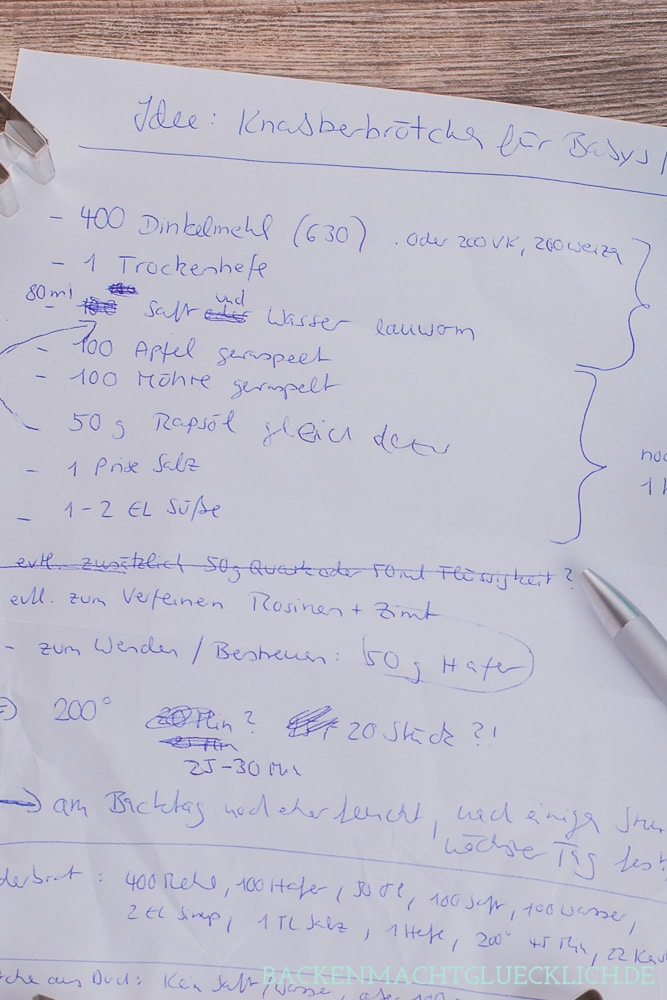 Idee: Knabberbrötchen für Babys
- 400 Dinkelmehl (630) . oder 200 VK, 200 Weizen
- 1 Trockenhefe
80 ml
- Saft und Wasser lauwarm
- 100 Apfel geraspelt
- 100 Möhre geraspelt
50 g Rapsöl
- 1 Prise Salz
- 1-2 EL Süße
evtl. zusätzlich 50g Quark oder 50ml Flüssigkeit ?
evtl. zum Verfeinen Rosinen + Zimt
- zum Wenden / Bestreuen: 50 g Hafer
200° 20 Min ? 20 Stück ?!
25-30 Min
→ am Backtag noch eher feucht, nach einigen
nächster Tag fest
400 Mehl, 100 Hafer, 50 Öl, 100 Saft, 100 Wasser,
2 EL Sirup, 1 TL Salz, 1 Hefe, 200° 45 Min, 22
aus Buch: Kein Saft/Wasser, aber 100
BACKENMACHTGLUECKLICH.DE